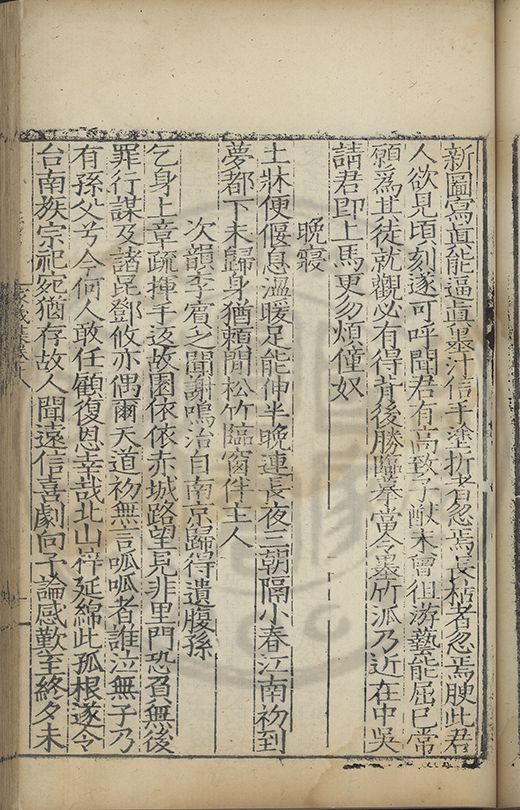 新圖寫真能逼真墨汁信手塗折者忽焉長枯者忽焉腴此君
人欲見頃刻遂可呼聞君有高致予猷未曾徂游藝能屈已常
願爲其徒就觀必有得背後勝臨摹當令墨竹派乃近在中吳
請君即上馬更勿煩僮奴
晚寢
土牀便偃息溫暖足能伸半晚連長夜三朝隔小春江南初到
夢都下未歸身猶頼閒松竹臨窗伴主人
次韻李賓之聞謝鳴治自南京歸得遺腹孫
乞身上章疏揮手返故園依依赤城路望見非里門恐負無後
罪行謀及諸昆鄧攸亦偶爾天道初無言呱呱者誰泣無子乃
有孫父兮今何人敢任顧復恩幸哉北山祥延綿此孤根遂令
台南族宗祀宛猶存故人聞遠信喜劇向予論感歎至終夕未